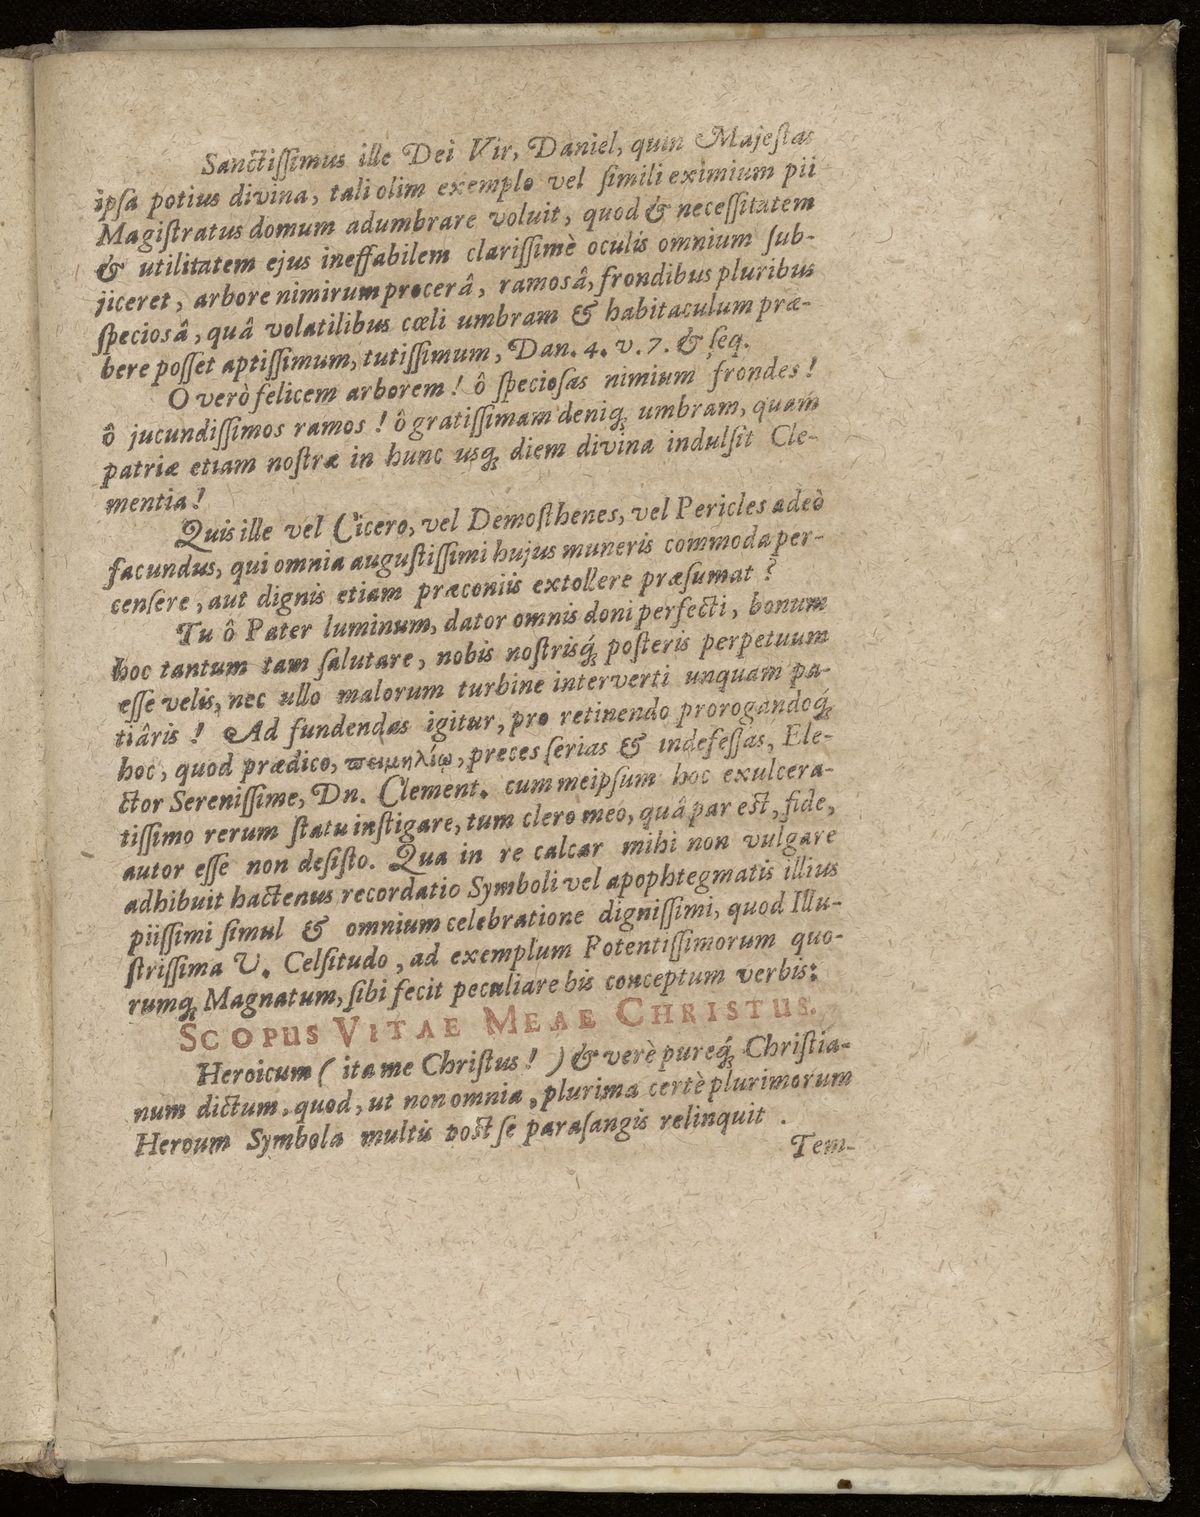 Sanctiſſimus ille Dei Vir, Daniel, quin Majeſtas
ipſa potius divina, tali olim exemplo vel ſimili eximium pii
Magiſtratus domum adumbrare voluit, quod & neceſſitatem
& utilitatem ejus ineffabilem clariſſimè oculis omnium ſub-
jiceret, arbore nimirum procerâ, ramosâ, frondibus pluribus
ſpeciosâ, quâ volatilibus cœli umbram & habitaculum præ-
bere poſſet aptiſſimum, tutiſſimum, Dan. 4. v. 7. & ſeq.
O verò felicem arborem! ô ſpecioſas nimium frondes!
ô jucundiſſimos ramos! ô gratiſſimam deniq; umbram, quam
patriæ etiam noſtræ in hunc usq; diem divina indulſit Cle-
mentia!
Quis ille vel Cicero, vel Demoſthenes, vel Pericles adeò
facundus, qui omnia auguſtiſſimi hujus muneris commoda per-
cenſere, aut dignis etiam præconiis extollere præſumat?
Tu ô Pater luminum, dator omnis doni perfecti, bonum
hoc tantum tam ſalutare, nobis noſtrisq́; poſteris perpetuum
eſſe velis, nec ullo malorum turbine interverti unquam pa-
tiâris! Ad fundendas igitur, pro retinendo prorogandoq́;
hoc, quod prædico, ϖειμηλίῳ, preces ſerias & indefeſſas, Ele-
ctor Sereniſſime, Dn. Clement. cum meipſum hoc exulcera-
tiſſimo rerum ſtatu inſtigare, tum clero meo, quâ par eſt, fide,
autor eſſe non deſiſto. Qua in re calcar mihi non vulgare
adhibuit hactenus recordatio Symboli vel apophtegmatis illius
piiſſimi ſimul & omnium celebratione digniſſimi, quod Illu-
ſtriſſima V. Celſitudo, ad exemplum Potentiſſimorum quo-
rumq; Magnatum, ſibi fecit peculiare his conceptum verbis:
SCOPUS VITAE MEAE CHRISTUS.
Heroicum (ita me Chriſtus!) & verè pureq́; Chriſtia-
num dictum, quod, ut non omnia, plurima certè plurimorum
Heroum Symbola multis poſt ſe paraſangis relinquit.
Tem-